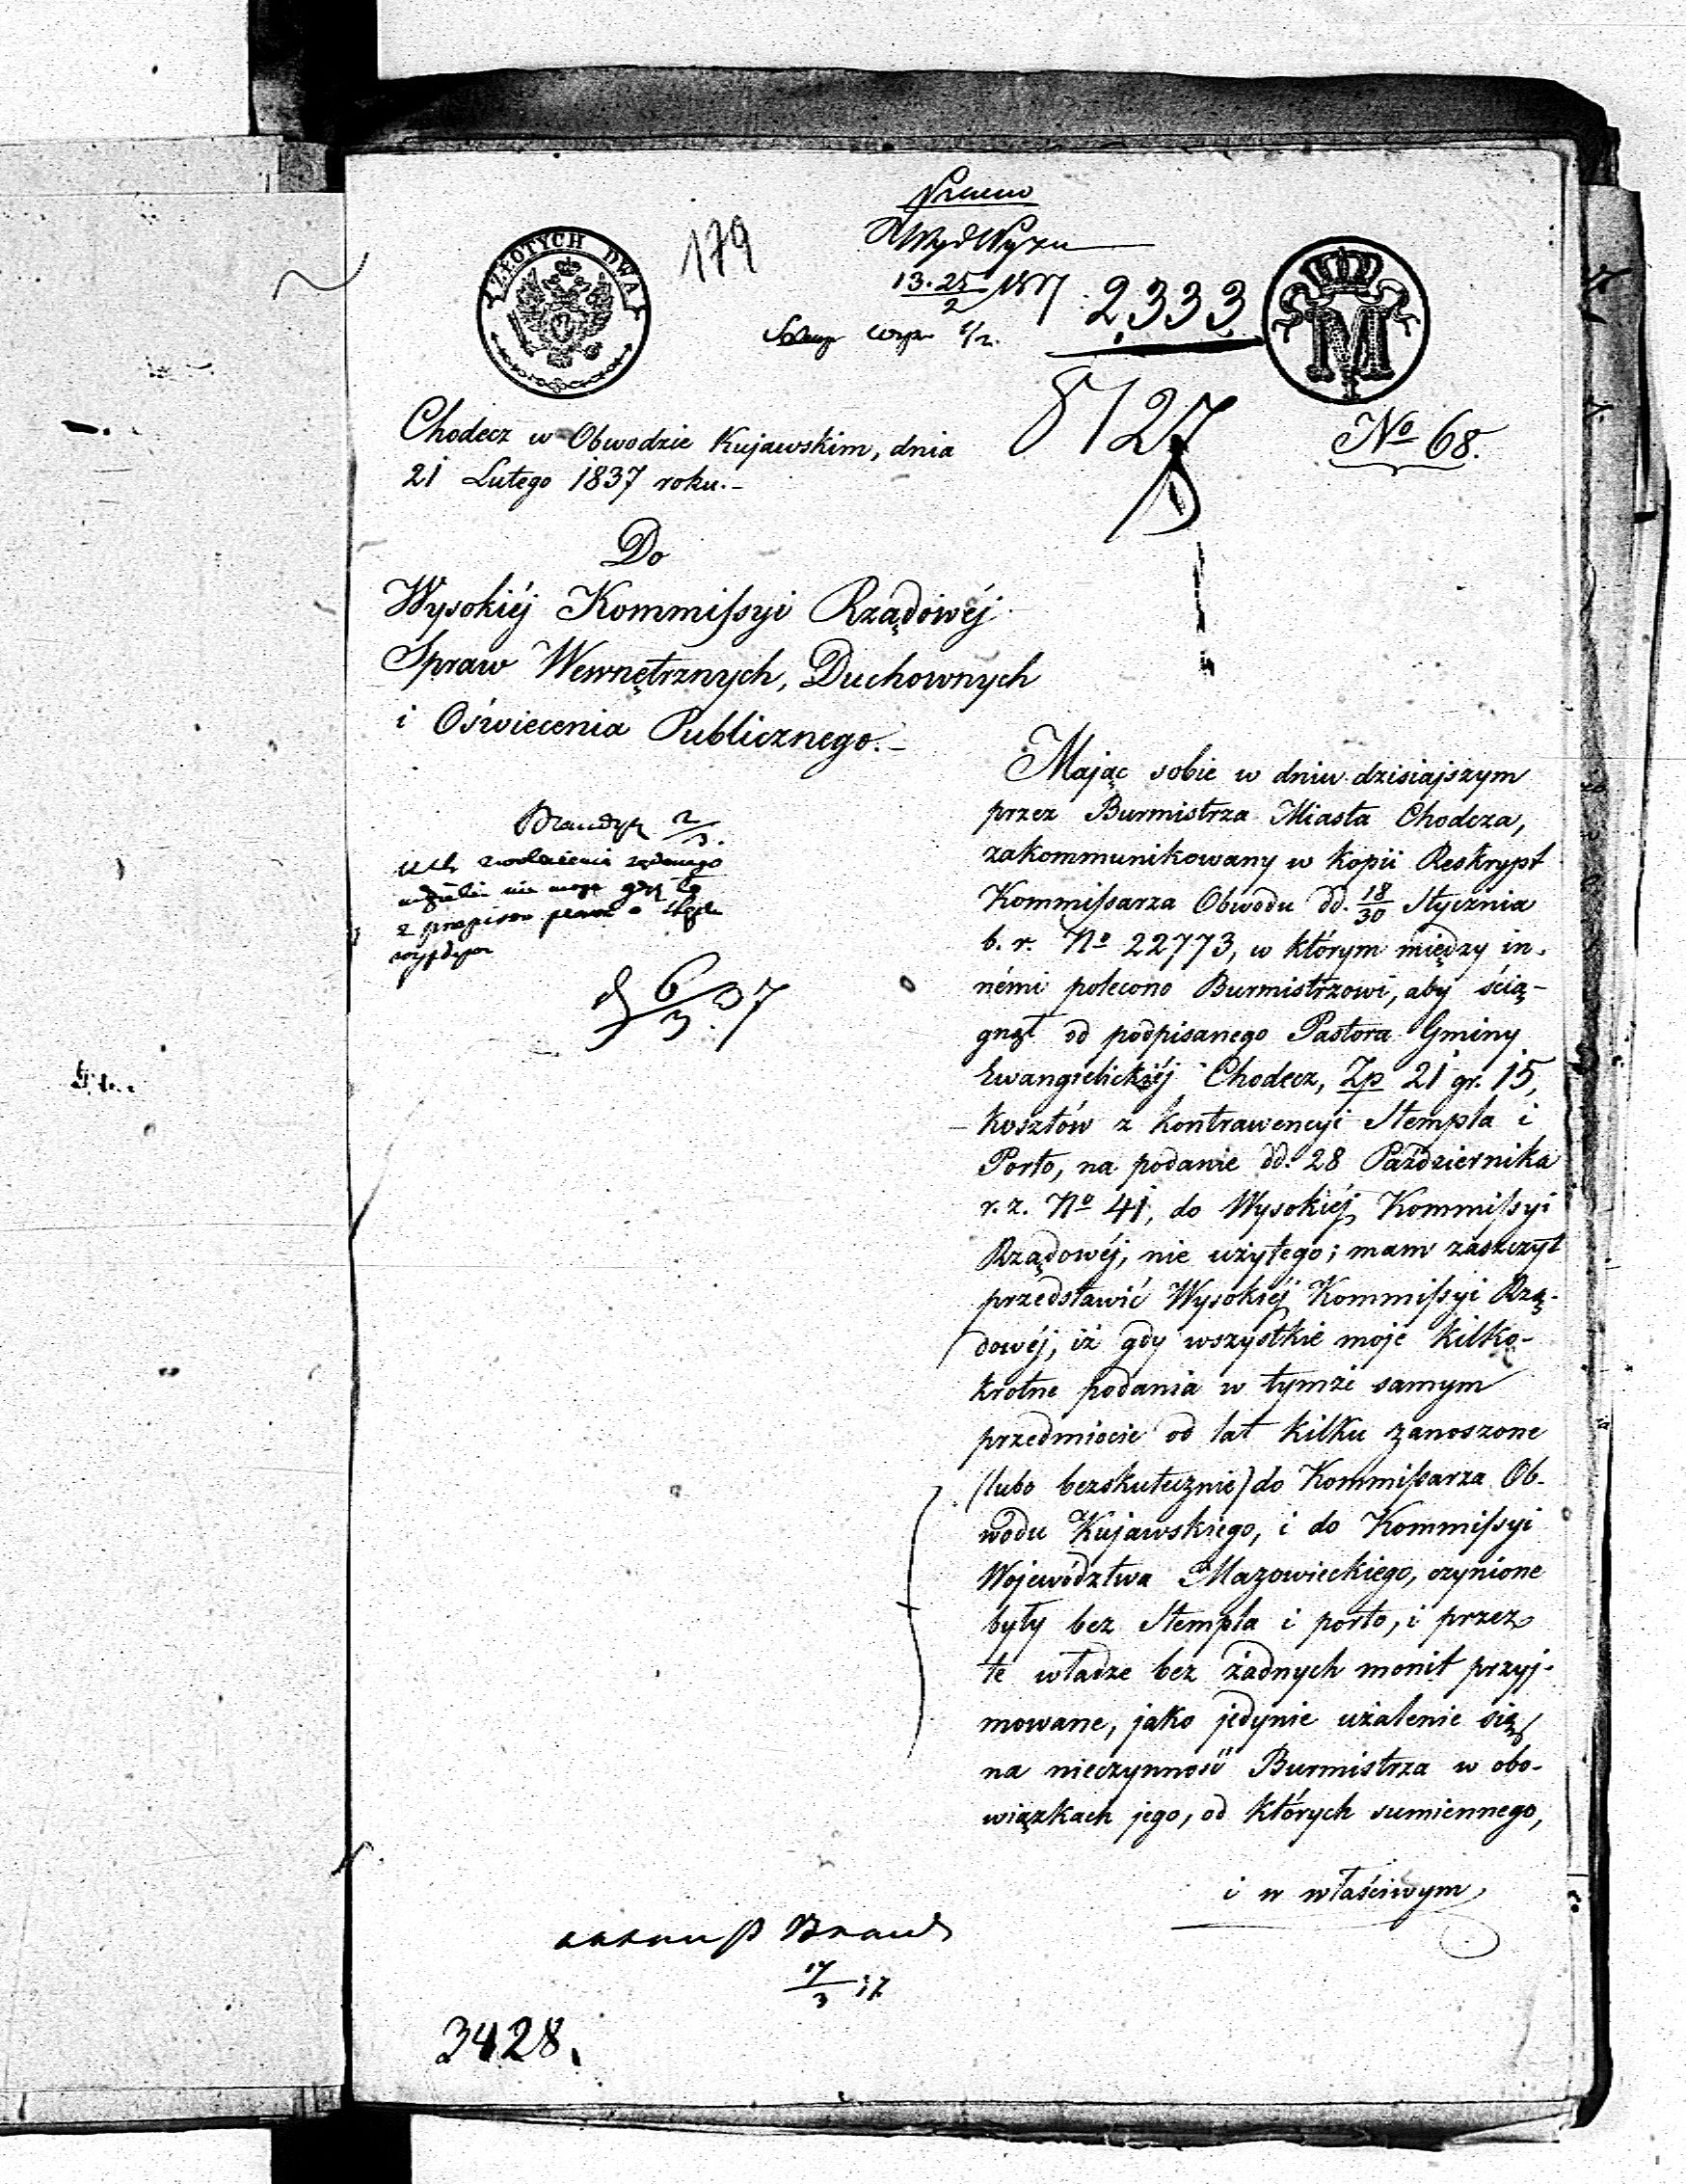 179
ZŁOTYCH DWA
13.25
2
2333
M
8127
No 68.
Chodecz w Obwodzie Kujawskim, dnia
21 Lutego 1837 roku.
Do
Wysokiéj Kommissyi Rządowéj
Spraw Wewnętrznych, Duchownych
i Oświecenia Publicznego.
2/3.
6/3.37
Mając sobie w dniu dzisiajszym
przez Burmistrza Miasta Chodcza,
zakommunikowany w kopii Reskrypt
Kommissarza Obwodu dd. 18/30 Stycznia
b. r. No 22773, w którym między in-
némi polecono Burmistrzowi, aby ścią-
gnął od podpisanego Pastora Gminy
Ewangielickiéj Chodecz, Zp 21 gr. 15,
kosztów z kontrawencyi Stempla i
Porto, na podanie dd. 28 Października
r. z. No 41, do Wysokiéj Kommissyi
Rządowéj, nie użytego; mam zaszczyt
przedstawić Wysokiéj Kommissyi Rzą-
dowéj, iż gdy wszystkie moje kilko-
krotne podania w tymże samym
przedmiocie od lat kilku zanoszone
(lubo bezskutecznie) do Kommissarza Ob-
wodu Kujawskiego, i do Kommissyi
Województwa Mazowieckiego, czynione
były bez Stempla i porto, i przez
te władze bez żadnych monit przyj-
mowane, jako jedynie użalenie się
na nieczynność Burmistrza w obo-
wiązkach jego, od których sumiennego,
i w właściwym
17/3 37
3428.